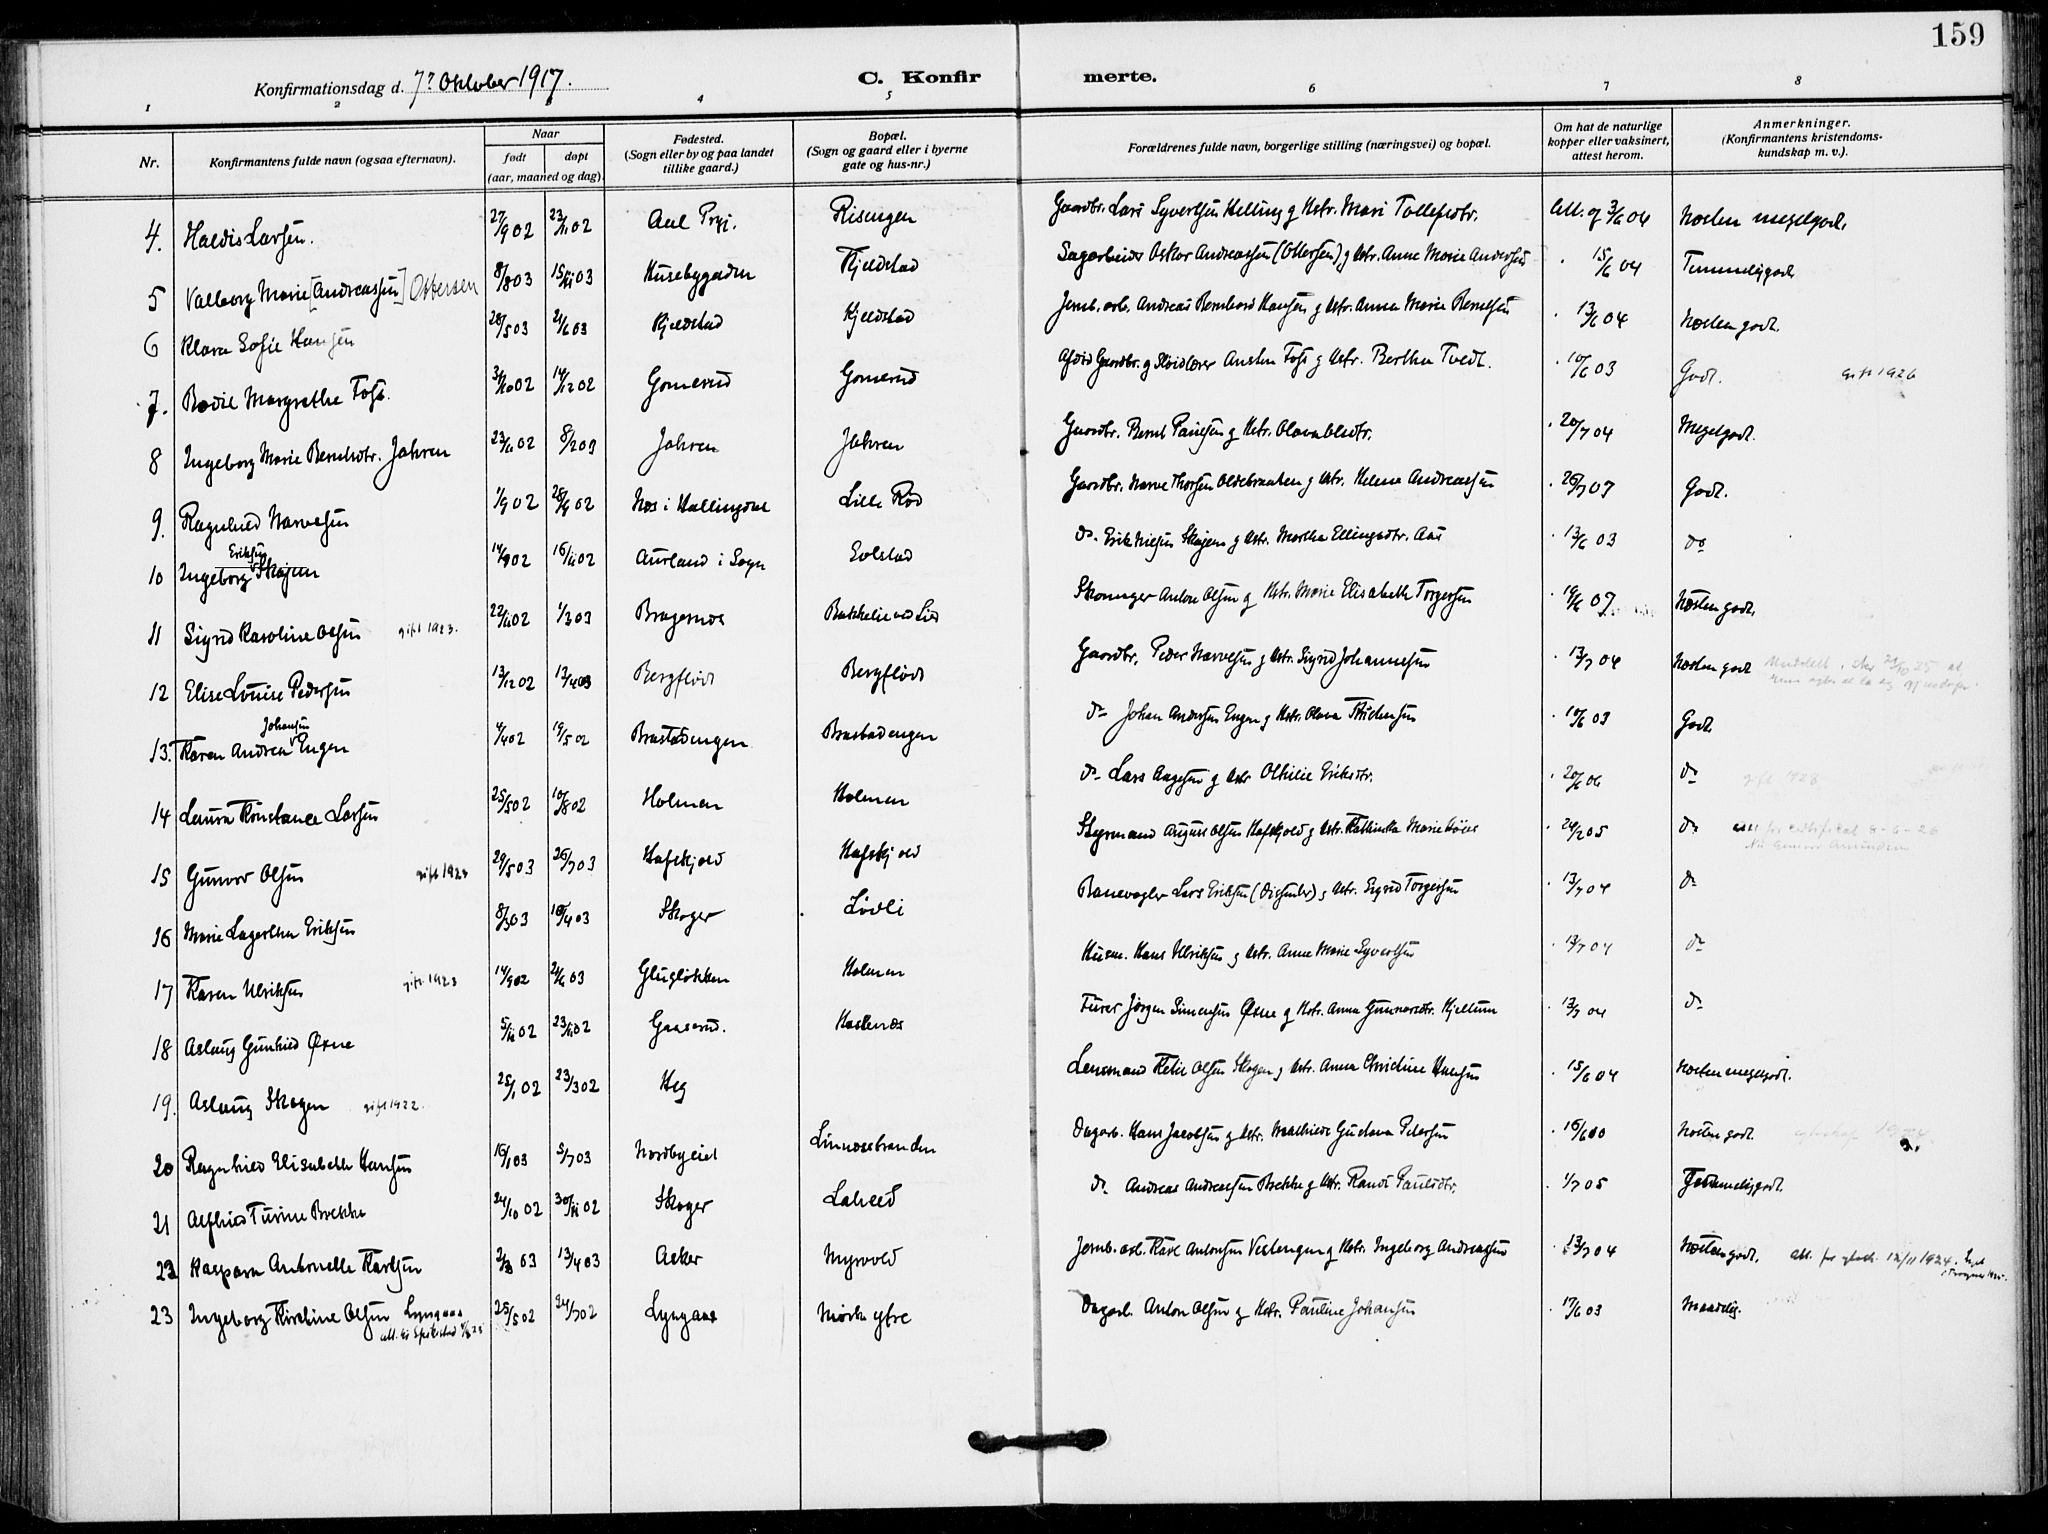 159
Konfirmationsdag d. 7de Oktober 1917.
C. Konfirmerte.
1 2 3 4 5 6 7 8
Nr.
Konfirmantens fulde navn (ogsaa efternavn).
Naar
født
døpt
(aar, maaned og dag).
Fødested.
(Sogn eller by og paa landet
tillike gaard.)
Bopæl.
(Sogn og gaard eller i byerne
gate og hus-nr.)
Forældrenes fulde navn, borgerlige stilling (næringsvei) og bopæl.
Om hat de naturlige
kopper eller vaksinert,
attest herom.
Anmerkninger.
(Konfirmantens kristendoms-
kundskap m. v.).
4. Haldis Larsen. 27/9 02 23/11 02 Aal Prgj. Risengen Gaardbr. Lars Syvertsen Helling g Hstr. Mari Tollefsdtr. Att. af 3/6 04 Næsten megetgodt.
5 Valborg Marie [Andreassen] Ottersen 8/8 03 15/11 03 Husebygaden Kjeldstad Sagarbeider Oskar Andreassen (Ottersen) g Hstr. Anne Marie Andersen 15/6 04 Temmeliggodt
6 Klara Sofie Hansen 28/5 03 21/6 03 Kjeldstad Kjeldstad Jernb. arb. Andreas Bernhard Hansen g Hstr. Anna Marie Berntsen 13/6 04 Næsten godt.
7. Bodil Margrethe Foss. 31/10 02 14/12 02 Gomerud Gomerud Gaardbr. g Sløidlærer Austen Foss g Hstr. Bertha Tvedt. 10/6 03 Godt. gift 1926
8 Ingeborg Marie Berntsdtr. Jahren 23/11 02 8/2 03 Jahren Jahren Gaardbr. Bernt Paulsen g Hstr. Olava Olsdtr. 20/7 04 Megetgodt.
9. Ragnhild Narvesen 1/9 02 28/9 02 Næs i Hallingdal Lille Rød Gaardbr. Narve Thorsen Oldebraaten g Hstr. Helene Andreassen 26/7 07 Godt.
10 Ingeborg Eriksen Skajem 14/9 02 16/11 02 Aurland i Sogn Solstad do. Erik Nielsen Skajem g Hstr. Martha Ellingsdtr. Aas 13/6 03 do
11 Sigrid Karoline Olsen gift 1923. 22/11 02 1/3 03 Bragernæs Bakkelie ved Lier Skomager Anton Olsen g Hstr. Marie Elisabeth Torgersen 19/6 07 Næstengodt.
12 Elise Louise Pedersen 13/12 02 13/4 03 Bergflødt Bergflødt Gaardbr. Peder Narvesen g Hstr. Sigrid Johannesen 13/7 04 Næsten godt
13. Karen Andrea Johansen Engen 4/4 02 19/5 02 Brastadengen Brastadengen do Johan Andersen Engen g Hstr. Olava 10/6 03 Godt.
14 Laura Konstance Larsen 25/5 02 10/8 02 Holmen Holmen do Lars Aagesen g Hstr Othilie Eriksdtr. 20/6 06 do gift 1928
15 Gunvor Olsen gift 1923 29/5 03 26/7 03 Hafskjold Hafskjold Styrmand August Olsen Hafskjold g Hstr. Kathinka Marie Høier 24/2 05 do Att for 8-6-26
Nu Gunvor Amundsen
16 Marie Lagertha Eriksen 8/3 03 10/4 03 Skoger Lødli Banevogter Lars Eriksen (Dissenter) g Hstr. Sigrid Torgersen 13/7 04 do
17 Karen Ulriksen gift 1923 14/9 02 21/6 03 Gluglokken Holmen Husm. Hans Ulriksen g Hstr. Anne Marie Syvertsen 13/7 04 do
18 Aslaug Gunhild Øxne 5/11 02 23/11 02 Gaaserud. Haslenæs Jørgen Simensen Øxne g Hstr. Anna Gunnarsdtr. Hjellum 13/7 04 do
19. Aslaug Skogen gift 1922. 25/1 02 23/3 02 Heg Lensmand Ketil Olsen Skogen g Hstr. Anna Christine Hansen 15/6 04 Næsten megetgodt.
20 Ragnhild Elisabeth Hansen 16/1 03 5/7 03 Nordbyeiet Linnæsebranden Dagarb. Hans Jacobsen g Hstr. Mathilde Gustava Petersen 16/6 00 Næsten godt.
21 Alfhild Turine Brekke 24/10 02 30/11 02 Skoger Lahell do Andreas Andreassen Brekke g Hstr. Randi Paulsdtr. 1/7 05 Temmeliggodt.
22 Kaspara Antonette Karlsen 2/3 03 13/4 03 Asker Myrvold Jernb. arb. Karl Antonsen Vestengen g Hstr. Ingeborg Andreassen 13/7 04 Næstengodt. att. for 12/11 1924.
23 Ingeborg Kristine Olsen Lyngaas 25/5 02 24/7 02 Lyngaas Mørk yfre Dagarb. Anton Olsen g Hstr. Pauline Johansen 17/6 03 Maadelig.
att. til Spikestad